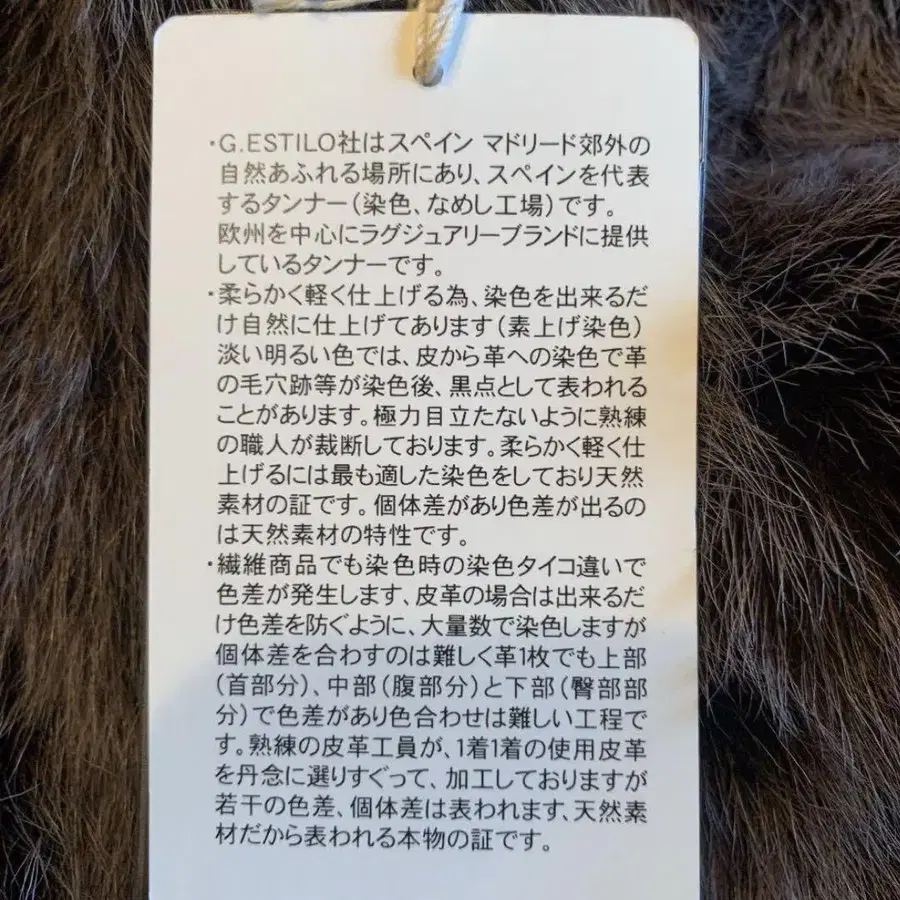 ・G.ESTILO社はスペイン マドリード郊外の
自然あふれる場所にあり、スペインを代表
するタンナー(染色、なめし工場)です。
欧州を中心にラグジュアリーブランドに提供
しているタンナーです。
・柔らかく軽く仕上げる為、染色を出来るだ
け自然に仕上げてあります(素上げ染色)
淡い明るい色では、皮から革への染色で革
の毛穴跡等が染色後、黒点として表われる
ことがあります。極力目立たないように熟練
の職人が裁断しております。柔らかく軽く仕
上げるには最も適した染色をしており天然
素材の証です。個体差があり色差が出るの
は天然素材の特性です。
・繊維商品でも染色時の染色タイコ違いで
色差が発生します、皮革の場合は出来るだ
け色差を防ぐように、大量数で染色しますが
個体差を合わすのは難しく革1枚でも上部
(首部分)、中部(腹部分)と下部(臀部部
分)で色差があり色合わせは難しい工程で
す。熟練の皮革工員が、1着1着の使用皮革
を丹念に選りすぐって、加工しておりますが
若干の色差、個体差は表われます、天然素
材だから表われる本物の証です。